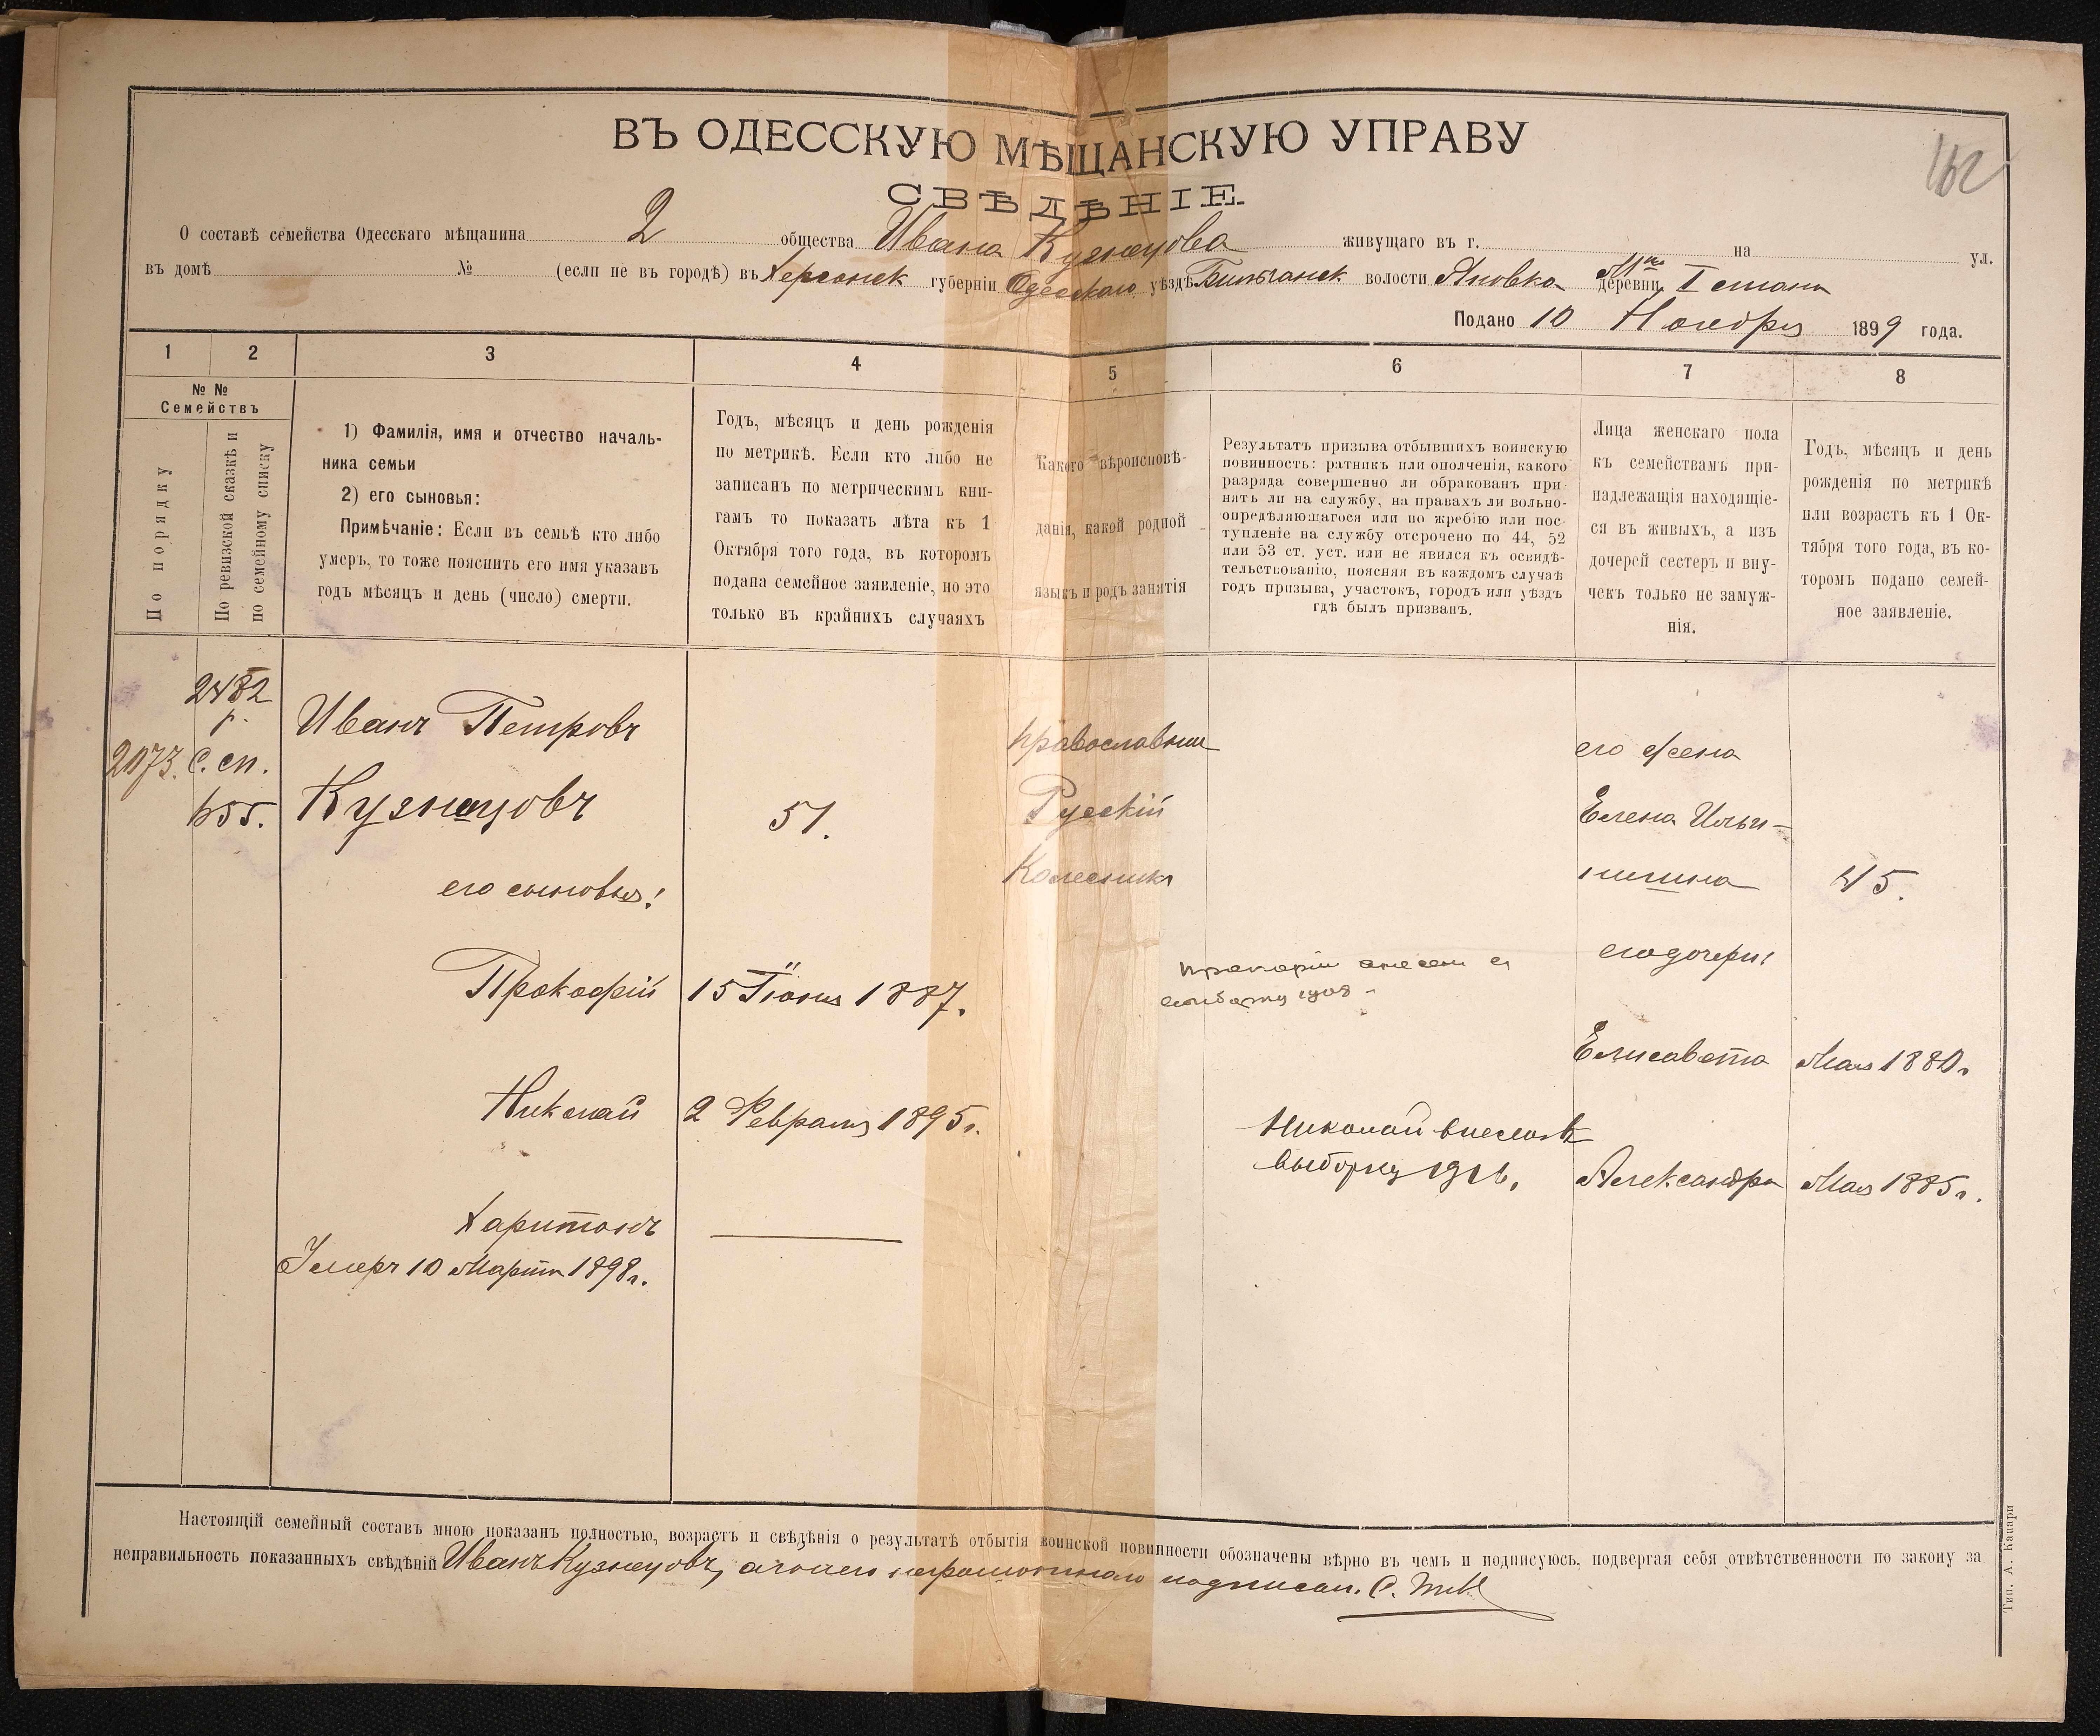 162
ВЪ ОДЕССКУЮ МѢЩАНСКУЮ УПРАВУ
СВѢДѢНІЕ.
О составѣ семейства Одесскаго мѣщанина 2 общества Ивана Кузнецова живущаго въ г. на ул.
въ домѣ № (если не въ городѣ) въ Херсонск губерніи Одесскаго уѣздѣ волости Яновка деревни I стана
Подано 10 Ноября 1899 года.
1 2 3 4 5 6 7 8
№ №
Семействъ
По порядку
По ревизской сказкѣ и
по семейному списку
1) Фамилія, имя и отчество началь-
ника семьи
2) его сыновья:
Примѣчаніе: Если въ семьѣ кто либо
умеръ, то тоже пояснить его имя указавъ
годъ мѣсяцъ и день (число) смерти.
Годъ, мѣсяцъ и день рожденія
по метрикѣ. Если кто либо не
записанъ по метрическимъ кни-
гамъ то показать лѣта къ 1
Октября того года, въ которомъ
подана семейное заявленіе, но это
только въ крайнихъ случаяхъ
Какого вѣроисповѣ-
данія, какой родной
языкъ и родъ занятія
Результатъ призыва отбывшихъ воинскую
повинность: ратникъ или ополченія, какого
разряда совершенно ли обракованъ при
нятъ ли на службу, на правахъ ли вольно-
опредѣляющагося или по жребію или пос-
тупленіе на службу отсрочено по 44, 52
или 53 ст. уст. или не явился къ освидѣ-
тельствованію, поясняя въ каждомъ случаѣ
годъ призыва, участокъ, городъ или уѣздъ
гдѣ былъ призванъ.
Лица женскаго пола
къ семействамъ при-
надлежащія находящіе-
ся въ живыхъ, а изъ
дочерей сестеръ и вну-
чекъ только не замуж-
нія.
Годъ, мѣсяцъ и день
рожденія по метрикѣ
или возрастъ къ 1 Ок-
тября того года, въ ко-
торомъ подано семей-
ное заявленіе.
2482
р.
2073. С. сп.
655.
Иванъ Петровъ
Кузнецовъ
51.
православный
Русскій
Колесникъ
его жена
Елена Ильи-
нишна 45.
его сыновья:
его дочери:
Прокофій 15 Іюня 1887.
1908
Елисавета Мая 1880г.
Николай 2 Февраля 1895г.
Николай внесенъ в
выборку 1916.
Александра Мая 1885г.
Харитонъ
Умеръ 10 Марта 1898г.
Настоящій семейный составъ мною показанъ полностью, возрастъ и свѣдѣнія о результатѣ отбытія воинской повинности обозначены вѣрно въ чемъ и подписуюсь, подвергая себя отвѣтственности по закону за
неправильность показанныхъ свѣдѣній Иванъ Кузнецовъ, а за него неграмотнаго подписал.
Тип. А. Капари